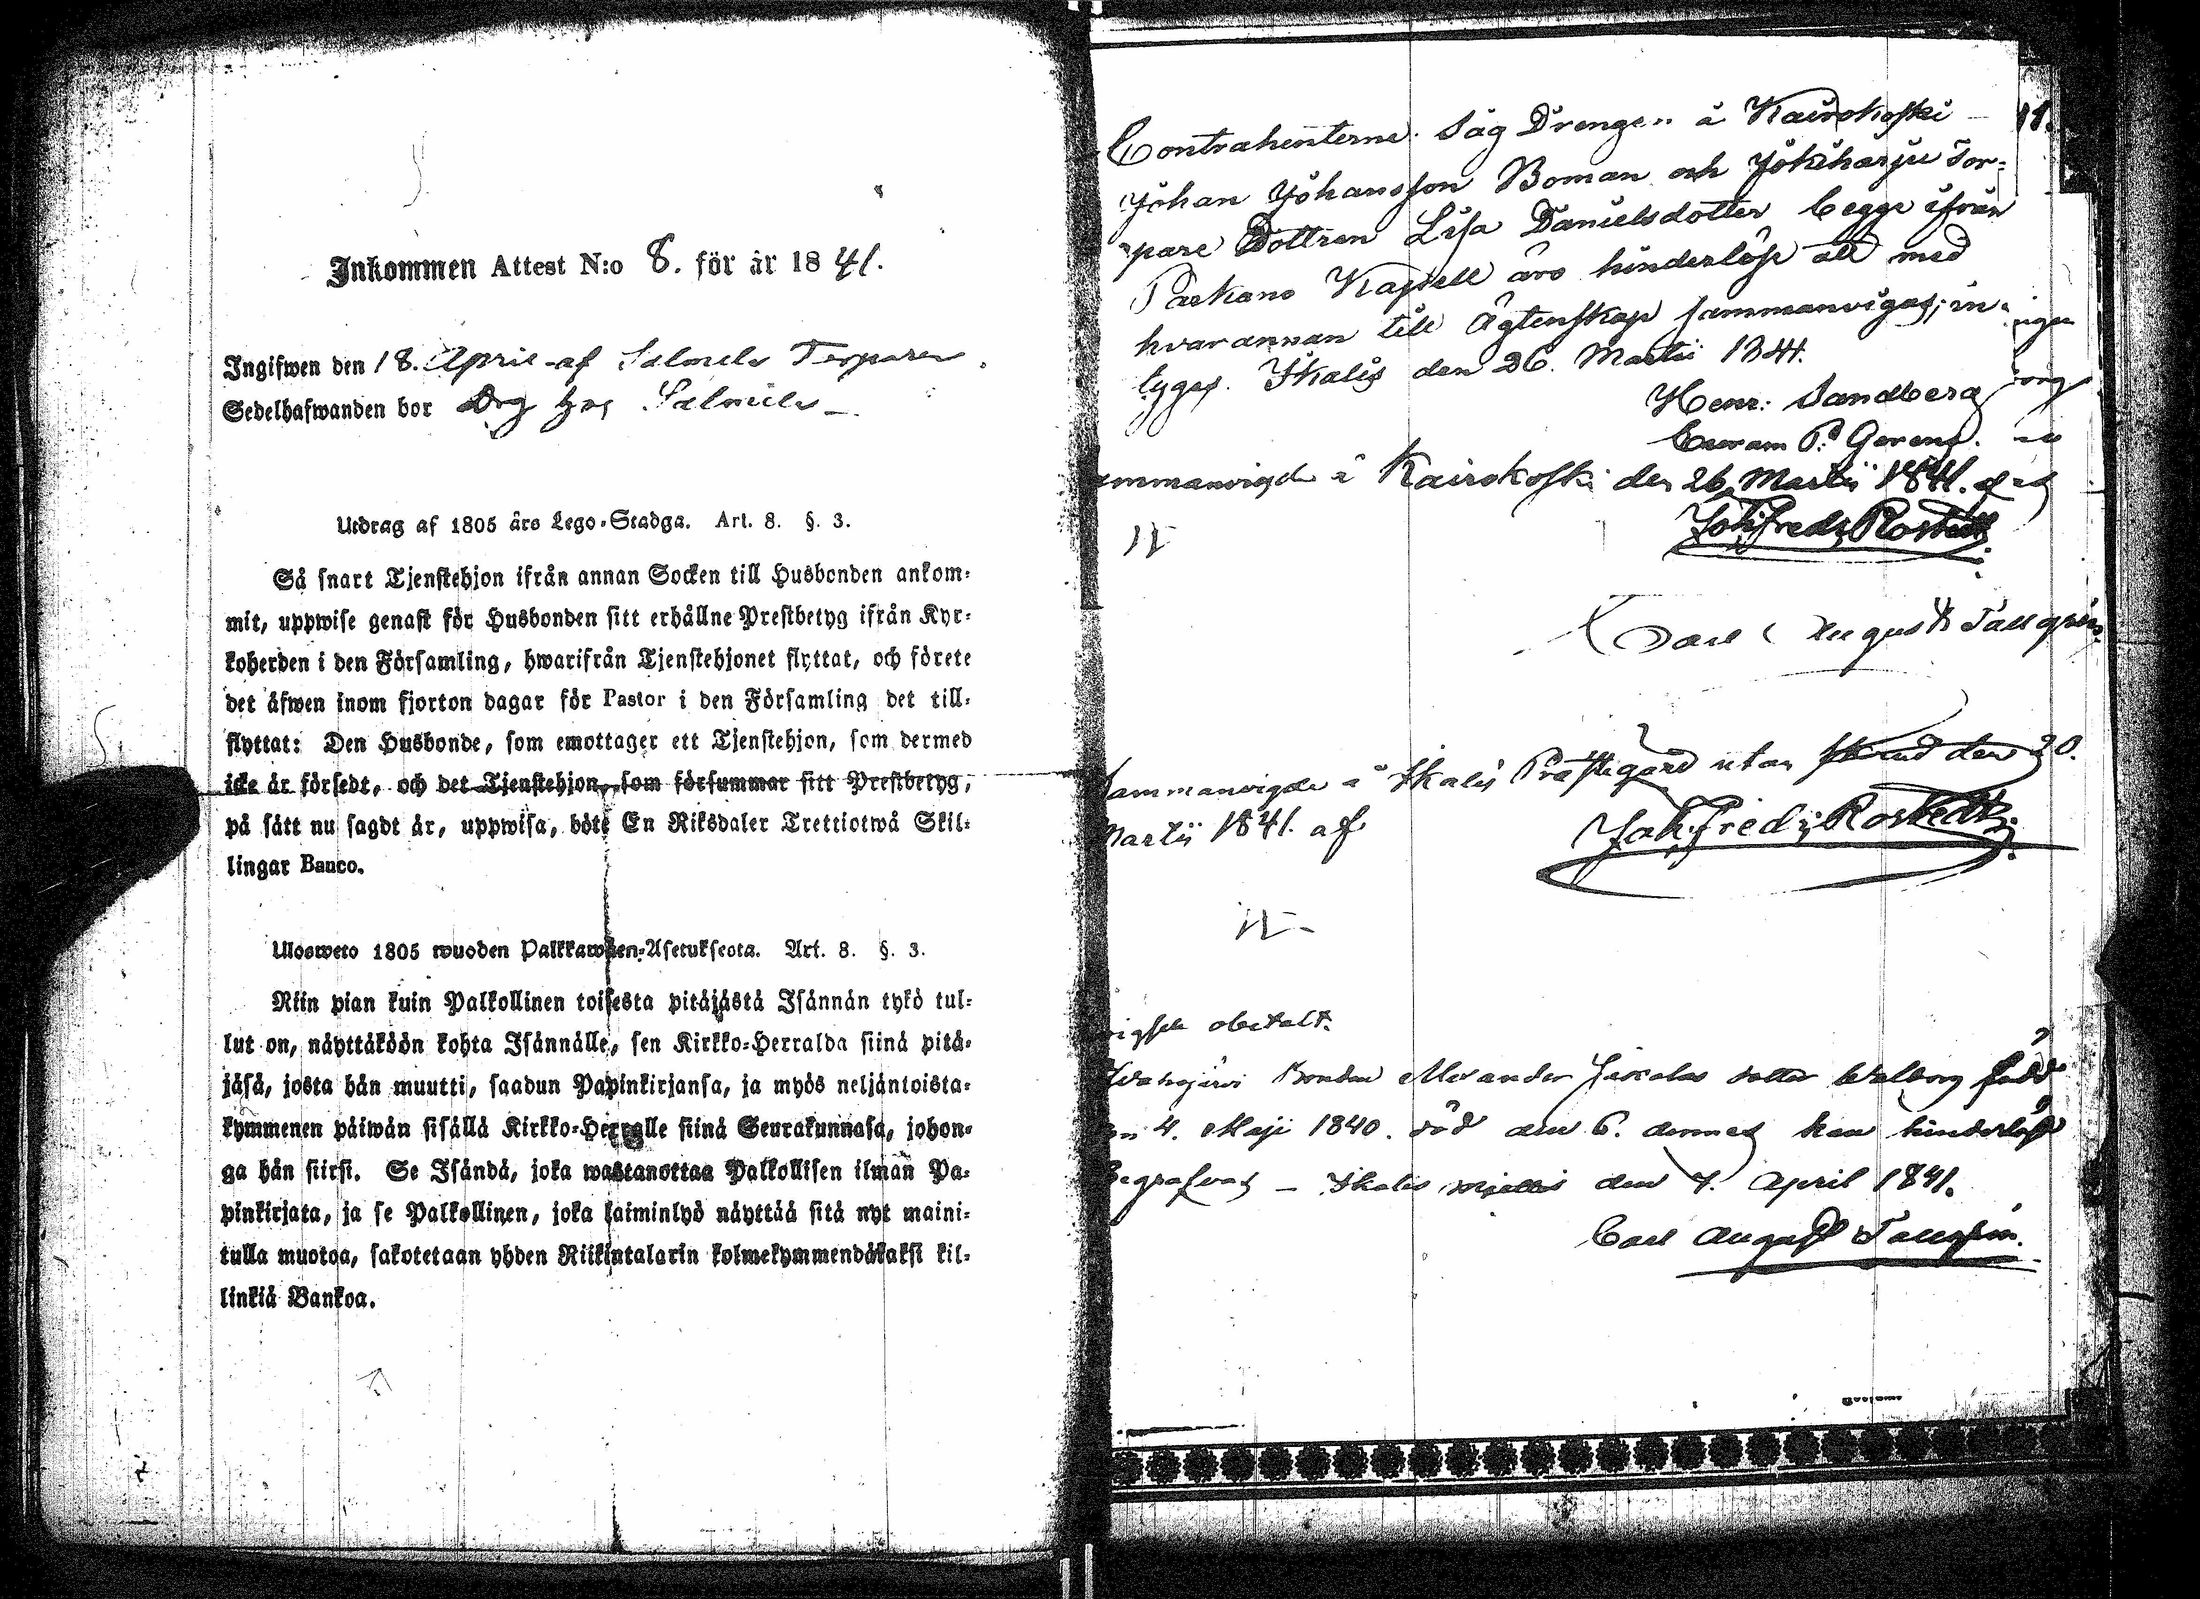 Inkommen Attest N:o 8. för år 1841.
Ingifwen den 18. April af Salmela Torparen
Sedelhafwanden bor Drg hos Salmela
Utdrag af 1805 års Lego-Stadga. Art. 8. §. 3.
Så snart Tjenstehjon ifrån annan Socken till Husbonden ankom-
mit, uppwise genast för Husbonden sitt erhållne Prestbetyg ifrån Kyr-
koherden i den Församling, hwarifrån Tjenstehjonet flyttat, och förete
det äfwen inom fjorton dagar för Pastor i den Församling det till-
flyttat: Den Husbonde, som emottager ett Tjenstehjon, som dermed
icke är försedt, och det Tjenstehjon, som försummar sitt Prestbetyg,
på sätt nu sagdt är, uppwisa, böte En Riksdaler Trettiotwå Skil-
lingar Banco.
Ulosweto 1805 wuoden Palkkawäen-Asetuksesta. Art. 8. §. 3.
Niin pian kuin Palkollinen toisesta pitäjästä Isännän tykö tul-
lut on, näyttäköön kohta Isännälle, sen Kirkko-Herralda siinä pitä-
jäsä, josta hän muutti, saadun Papinkirjansa, ja myös neljäntoista-
kymmenen päiwän sisällä Kirkko-Herralle siinä Seurakunnasa, johon-
ga hän siirsi. Se Isändä, joka wastanottaa Palkollisen ilman Pa-
pinkirjata, ja se Palkollinen, joka laiminlyö näyttää sitä nyt maini-
tulla muotoa, sakotetaan yhden Riikintalarin kolmekymmendäkaksi kil-
linkiä Bankoa.
11.
Contrahenterne Såg Drengen å Kairokoski
Johan Johansson Boman och Jokiharju Tor-
pare Dottren Lisa Danielsdotter begge ifrån
Parkano Kapell äro hinderlöse att med
hvarannan till Ägtenskap sammanvigas; in-
tygas. Ikalis den 26. Martii 1841.
Henr: Sandberg
Curam P. Gerens.
ammanvigde å Kairokoski den 26. Martii 1841. af
Joh. Fredr. Rostedt
Carl August Tallgrén
ammanvigde å Ikalis Prästegård utan Skrud den 20.
Martii 1841. af
Joh: Fredr: Rostedt
obetalt.
Bonden Alexander dotter Walborg född
4. Maji 1840. död den 6. dennes kan hinderlöst
Begrafvas – Ikalis den 7. April 1841.
Carl August Tallgrén.